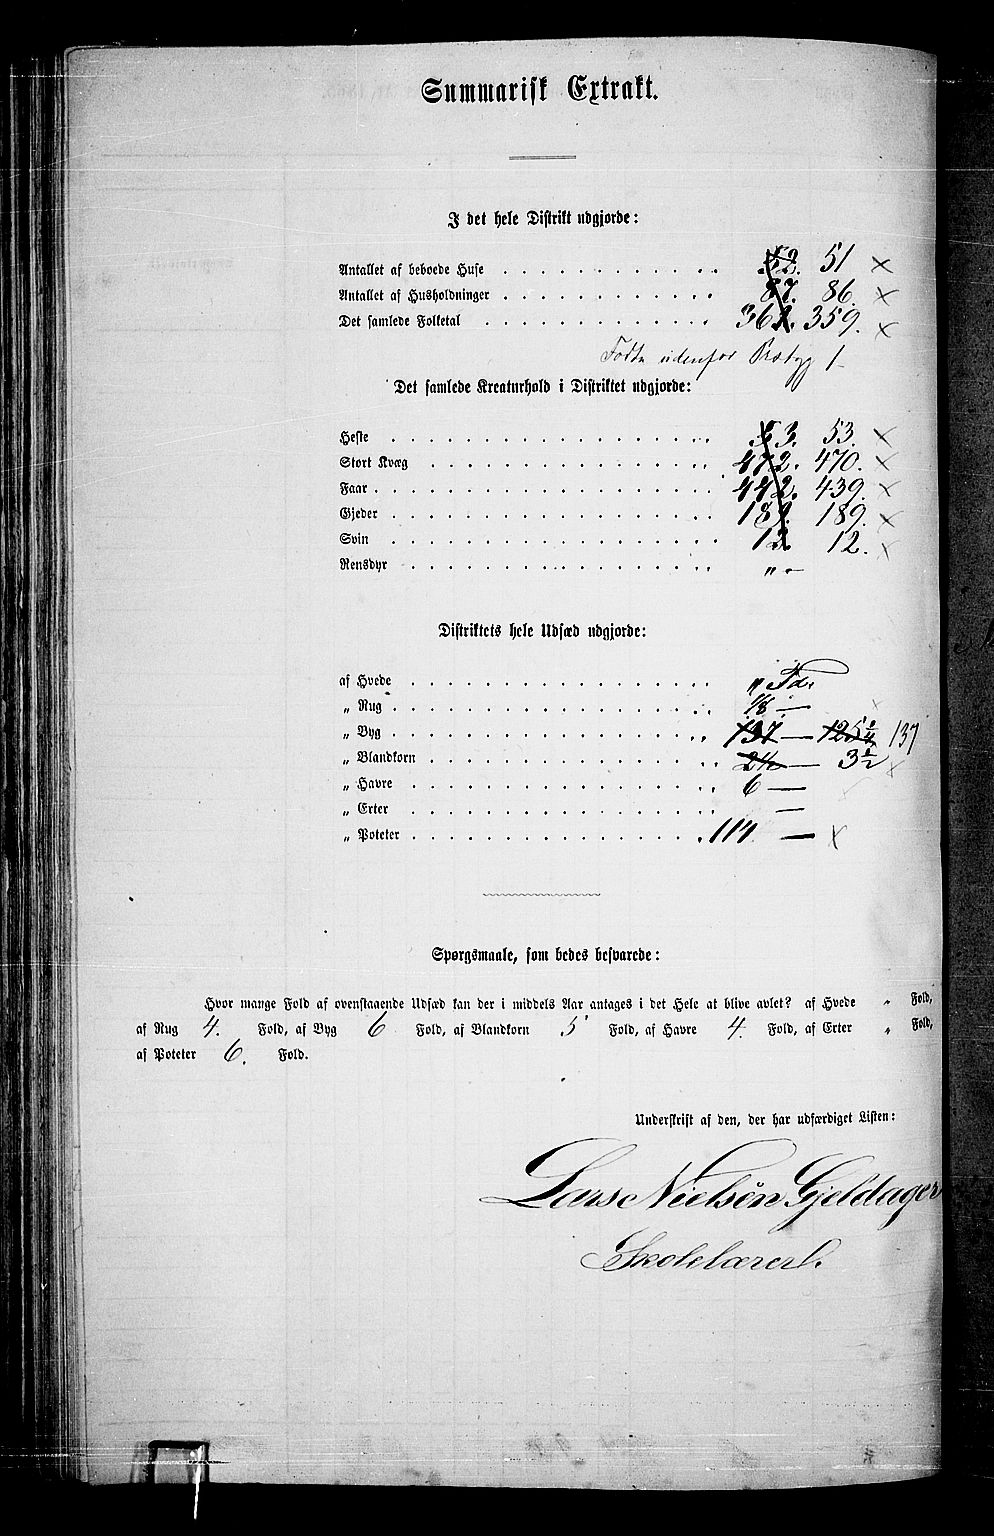 Summarisk Extrakt.
I det hele Distrikt udgjorde:
Antallet af beboede Huse . . . . . . . . . . . . 52. 51 ×
Antallet af Husholdninger . . . . . . . . . . . . 87. 86. ×
Det samlede Folketal . . . . . . . . . . . . . 362. 359. ×
Fødte udenfor Præstg 1
Det samlede Kreaturhold i Distriktet udgjorde:
Heste . . . . . . . . . . . . . . . . . 53. 53. ×
Stort Kvæg . . . . . . . . . . . . . . . 472. 470. ×
Faar . . . . . . . . . . . . . . . . . . 442. 439. ×
Gjeder . . . . . . . . . . . . . . . . . 189. 189. ×
Svin . . . . . . . . . . . . . . . . . 12 12. ×
Rensdyr . . . . . . . . . . . . . . . . „ -
Distriktets hele Udsæd udgjorde:
af Hvede . . . . . . . . . . . . . . . . „ Td.
„ Rug . . . . . . . . . . . . . . . . . 1/8 —
„ Byg . . . . . . . . . . . . . . . . . 137 — 125 2/4 137
„ Blandkorn . . . . . . . . . . . . . . 2 1/2 — 3 1/2 ×
„ Havre . . . . . . . . . . . . . . . . 6 —
„ Erter . . . . . . . . . . . . . . . . —
„ Poteter . . . . . . . . . . . . . . . 114 — ×
Spørgsmaale, som bedes besvarede:
Hvor mange Fold af ovenstaaende Udsæd kan der i middels Aar antages i det Hele at blive avlet? af Hvede „ Fold,
af Rug 4. Fold, af Byg 6 Fold, af Blandkorn 5 Fold, af Havre 4. Fold, af Erter „ Fold,
af Poteter 6. Fold.
Underskrift af den, der har udfærdiget Listen:
Lars Nielsøn Gjeldager
Skolelærer.